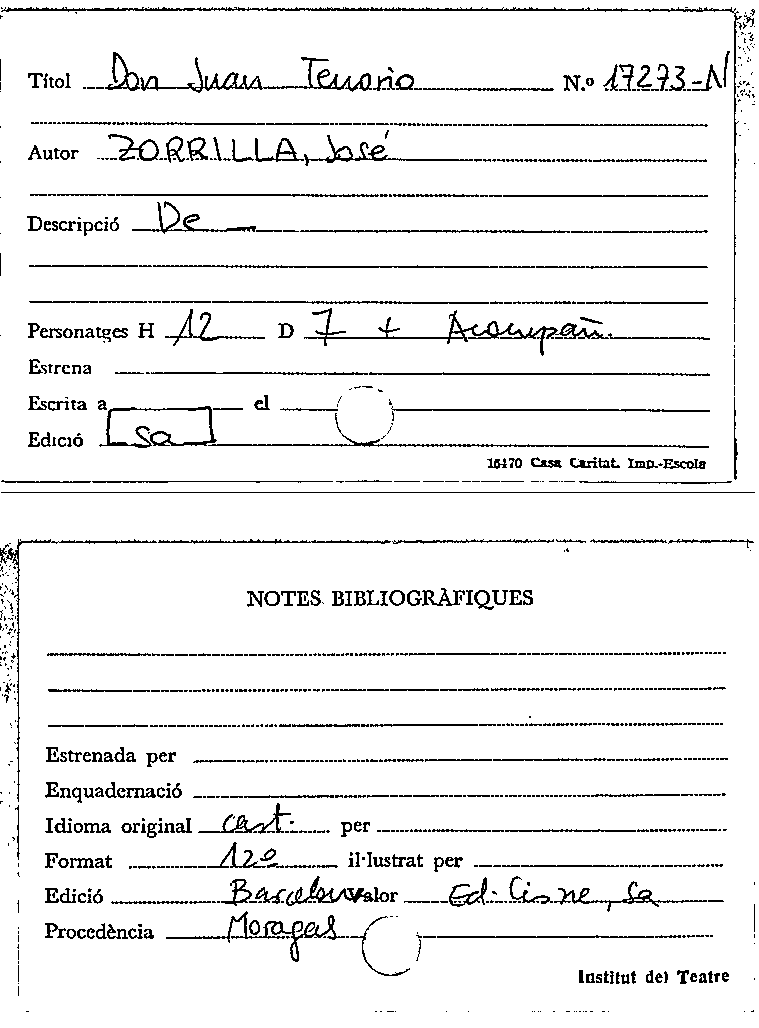 Títol Don Juan Tenorio N.º 17273-N
Autor ZORRILLA, José
Descripció De —
Personatges H 12 D 7 + Acompañ.
Estrena
Escrita a el
Edició sa
16170 Casa Caritat. Imp.-Escola
NOTES BIBLIOGRÀFIQUES
Estrenada per
Enquadernació
Idioma original cast. per
Format 12º il·lustrat per
Edició Barcelona Valor Ed. Cisne, sa
Procedència Moragas
Institut del Teatre